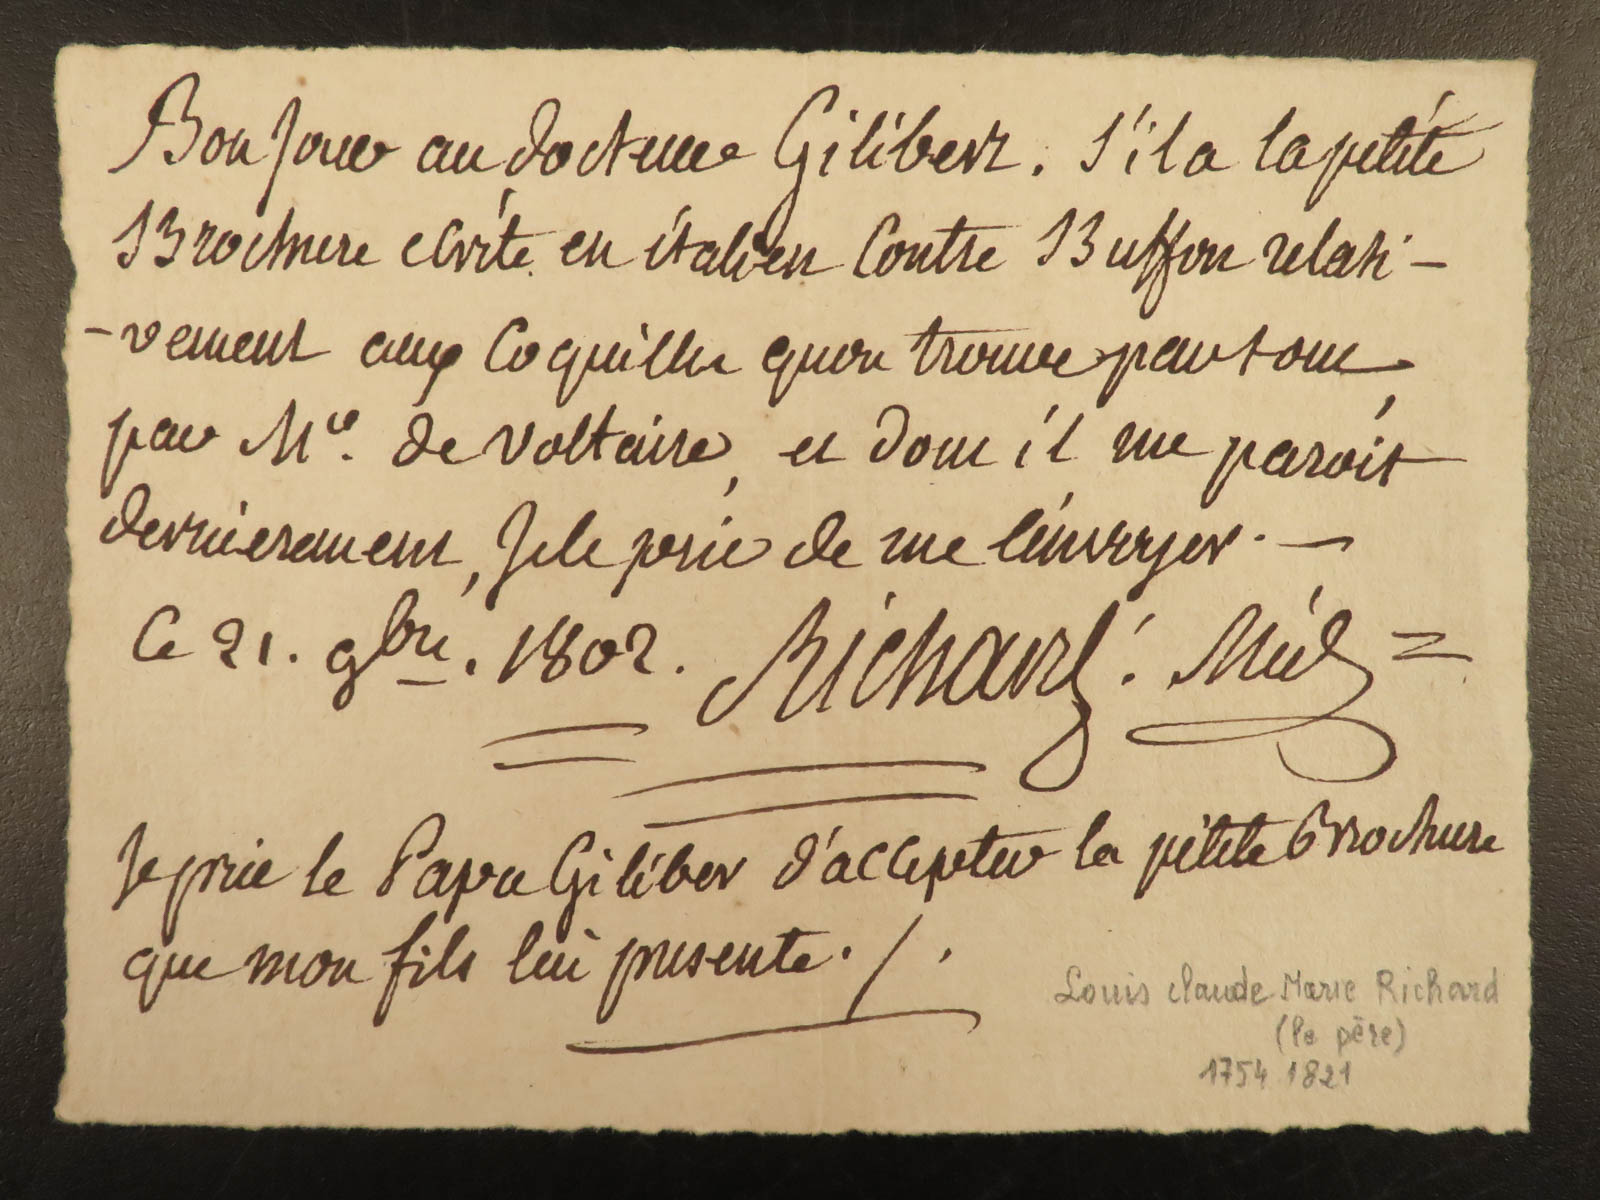 Bonjour au docteur Gilibert. S'il a la petite
Brochure ecrite en italien Contre Buffon relati-
-vement aux Coquilles quon trouve partout
par Mr. de Voltaire, et dont il me paroit
dernierement, Je le prie de me l'envoyer. —
Ce 21. 9bre. 1802. Richard. Méd =
Je prie le Papa Giliber d'accepter la petite brochure
que mon fils lui presente. /.
Louis Claude Marie Richard
(le père)
1754 1821